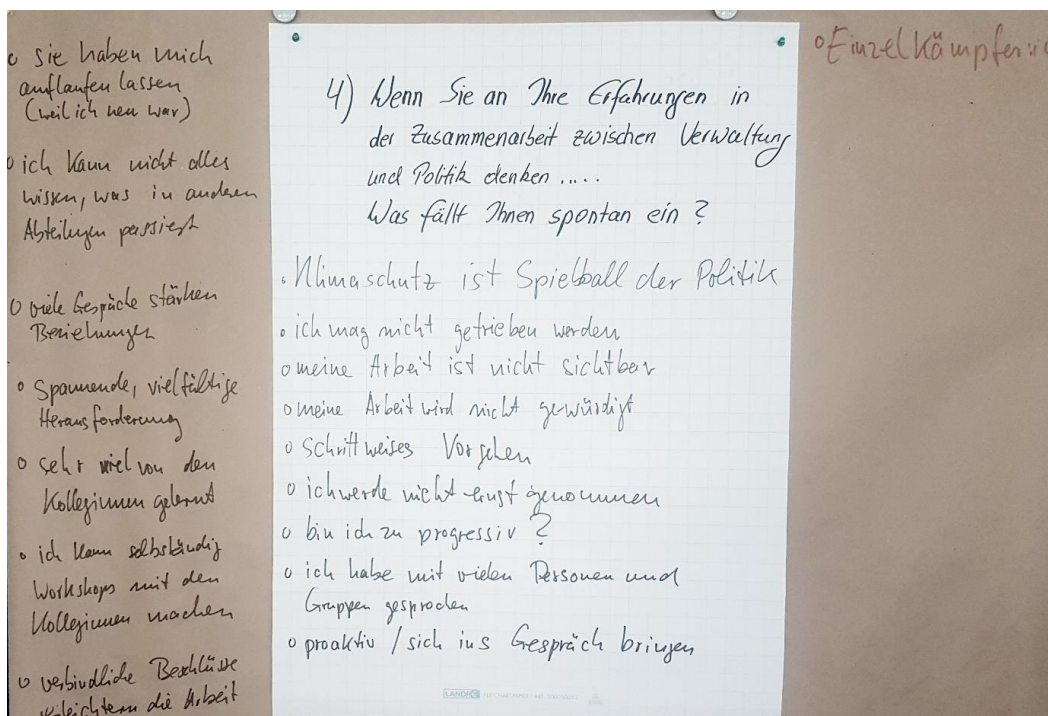 o Sie haben mich
auflaufen lassen
(weil ich neu war)
o ich kann nicht alles
wissen, was in anderen
Abteilungen passiert
o viele Gespräche stärken
Beziehungen
o Spannende, vielfältige
Herausforderung
o sehr viel von den
Kolleginnen gelernt
o ich kann selbständig
Workshops mit den
Kolleginnen machen
o verbindliche Beschlüsse
erleichtern die Arbeit
4) Wenn Sie an Ihre Erfahrungen in
der Zusammenarbeit zwischen Verwaltung
und Politik denken .....
Was fällt Ihnen spontan ein ?
o Klimaschutz ist Spielball der Politik
o ich mag nicht getrieben werden
o meine Arbeit ist nicht sichtbar
o meine Arbeit wird nicht gewürdigt
o Schrittweises Vorgehen
o ich werde nicht ernst genommen
o bin ich zu progressiv ?
o ich habe mit vielen Personen und
Gruppen gesprochen
o proaktiv / sich ins Gespräch bringen
LANDRÉ
o Einzelkämpfer:i